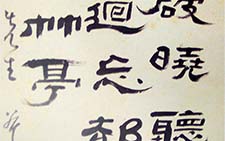 破曉聽
迴忘却
柳亭
先生